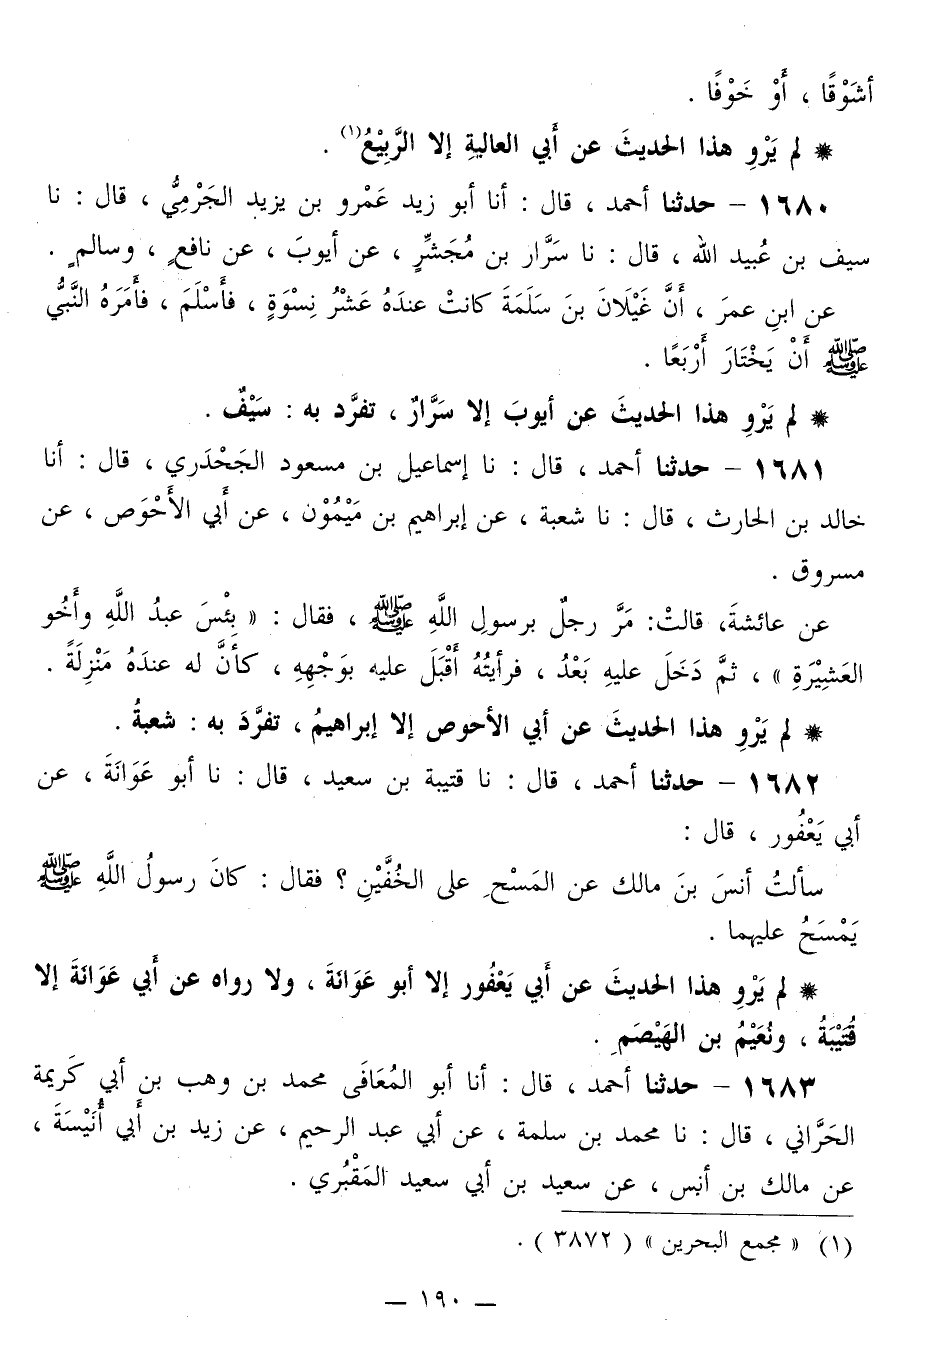 أشَوْقًا ، أَوْ خَوْفًا .
* لم يَرْوِ هذا الحديثَ عن أَبي العاليةِ إلا الرَّبِيْعُ(١) .
١٦٨٠ – حدثنا أحمد ، قال : أنا أبو زيد عَمْرو بن يزيد الجَرْمِيُّ ، قال : نا
سيف بن عُبيد الله ، قال : نا سَرَّار بن مُجَشِّرٍ ، عن أيوبَ ، عن نافعٍ ، وسالمٍ .
عن ابنِ عمرَ ، أَنَّ غَيْلَانَ بنَ سَلَمَةَ كانتْ عندَهُ عَشْرُ نِسْوَةٍ ، فأَسْلَمَ ، فأَمَرَهُ النَّبيُّ
ﷺ أَنْ يَخْتَارَ أَرْبَعًا .
* لم يَرْوِ هذا الحديثَ عن أيوبَ إلا سَرَّارٌ ، تفرَّد به : سَيْفٌ .
١٦٨١ – حدثنا أحمد ، قال : نا إسماعيل بن مسعود الجَحْدَري ، قال : أنا
خالد بن الحارث ، قال : نا شعبة ، عن إبراهيم بن مَيْمُوْن ، عن أَبي الأَحْوَص ، عن
مسروق .
عن عائشةَ، قالتْ: مَرَّ رجلٌ برسولِ اللَّهِ ﷺ ، فقال : « بِئْسَ عبدُ اللَّهِ وأَخُو
العَشِيْرَةِ » ، ثمَّ دَخَلَ عليهِ بَعْدُ ، فرأيتُهُ أَقْبَلَ عليه بوَجْهِهِ ، كأنَّ له عندَهُ مَنْزِلَةً .
* لم يَرْوِ هذا الحديثَ عن أبي الأحوص إلا إبراهيمُ ، تفرَّدَ به : شعبةُ .
١٦٨٢ – حدثنا أحمد ، قال : نا قتيبة بن سعيد ، قال : نا أبو عَوَانَةَ ، عن
أبي يَعْفُور ، قال :
سألتُ أنسَ بنَ مالك عن المَسْحِ على الخُفَّيْنِ ؟ فقال : كانَ رسولُ اللَّهِ ﷺ
يَمْسَحُ عليهما .
* لم يَرْوِ هذا الحديثَ عن أَبي يَعْفُور إلا أبو عَوَانَةَ ، ولا رواه عن أَبي عَوَانَةَ إلا
قُتَيْبَةُ ، ونُعَيْمُ بن الهَيْصَمِ .
١٦٨٣ – حدثنا أحمد ، قال : أنا أبو المُعَافَى محمد بن وهب بن أبي كَريمة
الحَرَّاني ، قال : نا محمد بن سلمة ، عن أبي عبد الرحيم ، عن زيد بن أَبي أُنَيْسَةَ ،
عن مالك بن أنس ، عن سعيد بن أبي سعيد المَقْبُري .
(١) « مجمع البحرين » ( ٣٨٧٢ ) .
– ١٩٠ –